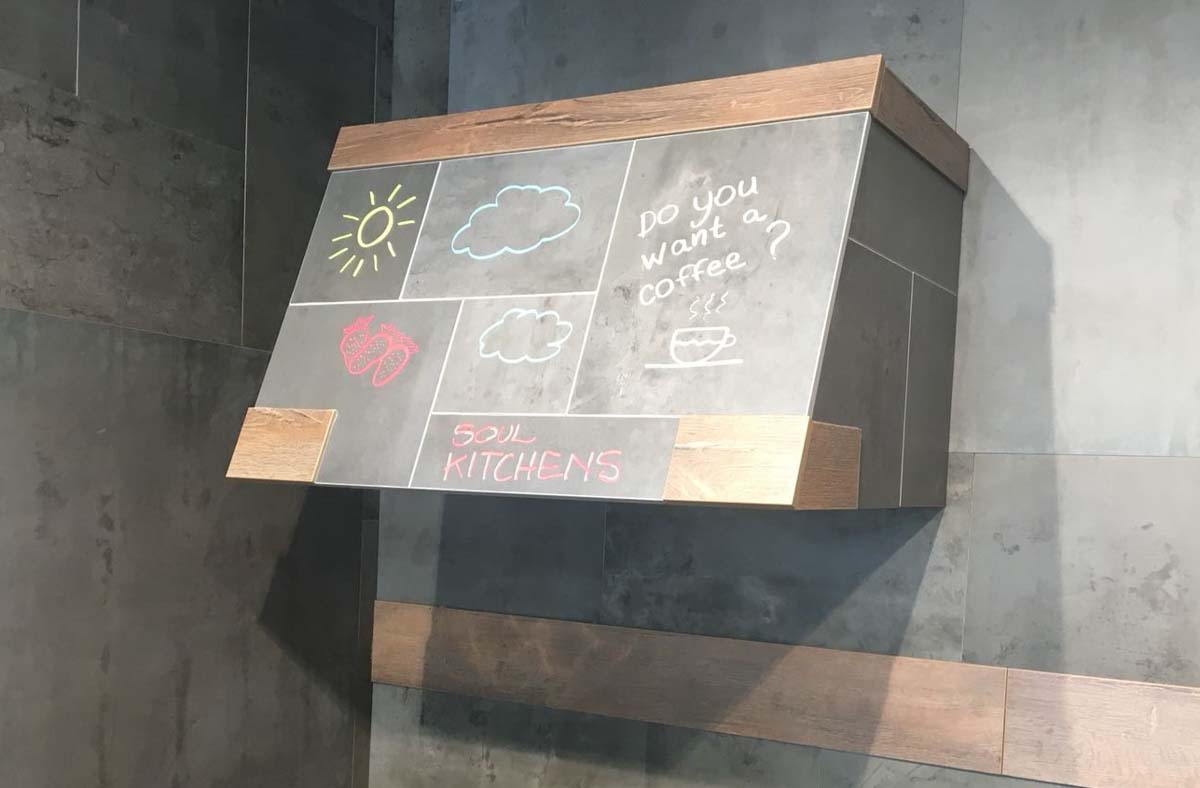 Do you
want a
coffee ?
SOUL
KITCHENS